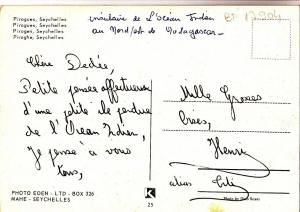 Pirogues, Seychelles
Pirogues, Seychelles
Pirogues, Seychelles
Piroghe, Seychelles
insulaire de l'Océan Indien
au Nord/est de Madagascar
Chère Dédée,
Petite pensée affectueuse
d'une petite île perdue
de l'Océan Indien,
Je pense à vous
tous,
Mille Grosses
Bises,
Henri
alias
PHOTO EDEN - LTD - BOX 326
MAHE - SEYCHELLES
K
25